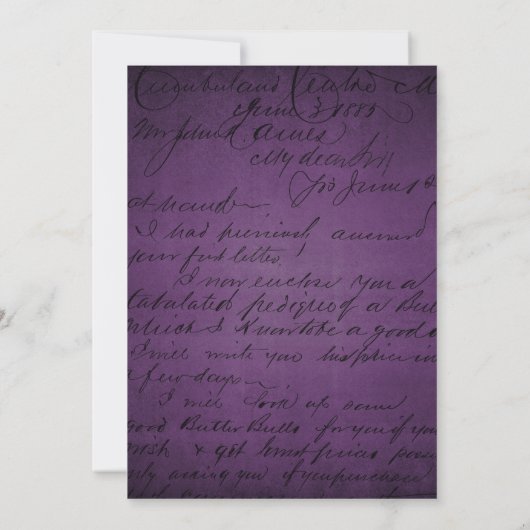 Cumberland Centre M
June 3 1885
Mr John Ames
My dear Sir!
Yrs June 2
at hand
I had previously answered
your first letter!
I now enclose you a
tabulated pedigree of a Bull
which I know to be a good
I will write you his price in
a few days
I will look up some
good Butter Bulls for you if you
wish & get lowest prices
only asking you if you purchase